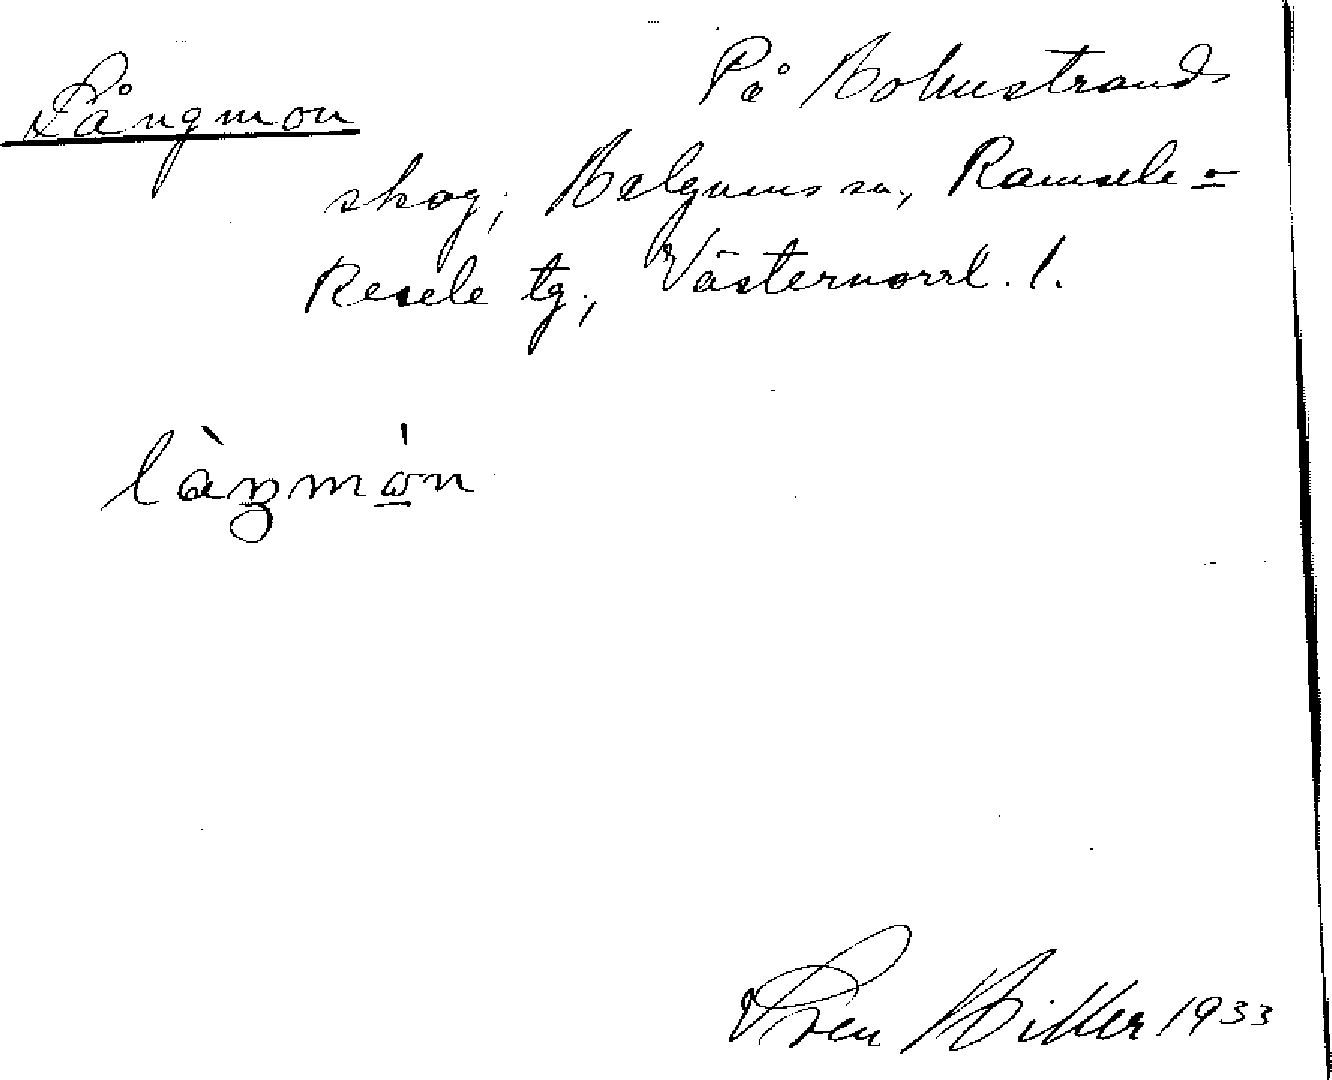 Långmon
På Holmstrands
skog, Helgums sn., Ramsele-
Resele tg., Västernorrl. l.
Sven Hiller 1933